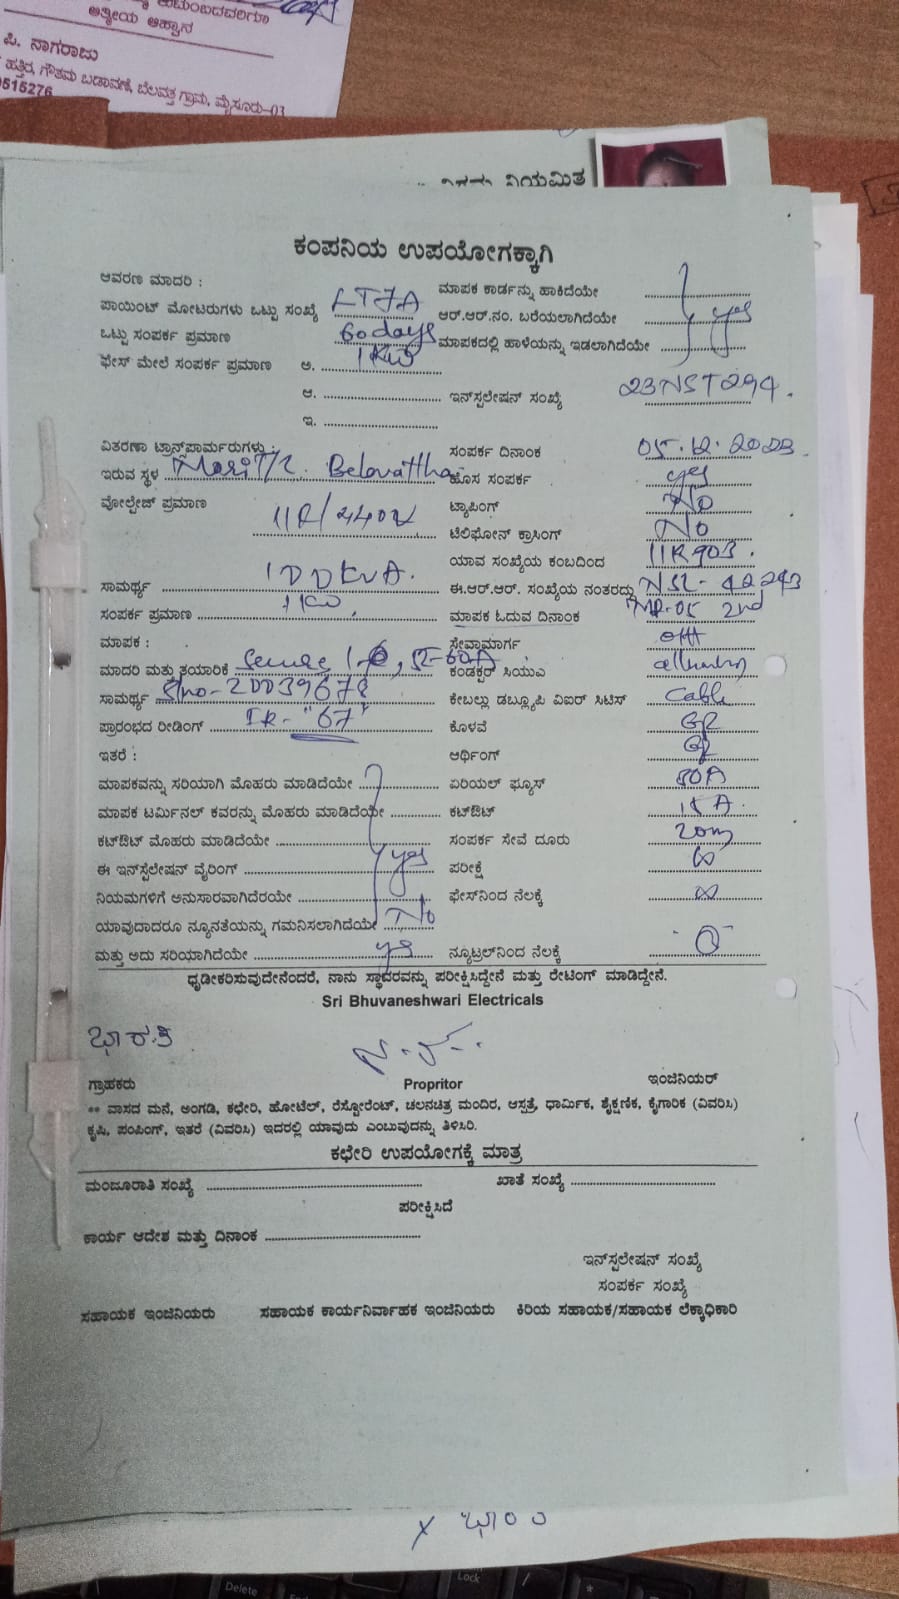 ಆತ್ಮೀಯ ಆಹ್ವಾನ
ಪಿ. ನಾಗರಾಜು
ಹತ್ತಿರ, ಗೌತಮ ಬಡಾವಣೆ, ಬೆಲವತ್ತ ಗ್ರಾಮ, ಮೈಸೂರು-03
ನಿಯಮಿತ
ಕಂಪನಿಯ ಉಪಯೋಗಕ್ಕಾಗಿ
ಆವರಣ ಮಾದರಿ : ಮಾಪಕ ಕಾರ್ಡನ್ನು ಹಾಕಿದೆಯೇ
ಪಾಯಿಂಟ್ ಮೋಟರುಗಳು ಒಟ್ಟು ಸಂಖ್ಯೆ LT7A ಆರ್.ಆರ್.ನಂ. ಬರೆಯಲಾಗಿದೆಯೇ yes
ಒಟ್ಟು ಸಂಪರ್ಕ ಪ್ರಮಾಣ 60 days ಮಾಪಕದಲ್ಲಿ ಹಾಳೆಯನ್ನು ಇಡಲಾಗಿದೆಯೇ
ಫೇಸ್ ಮೇಲೆ ಸಂಪರ್ಕ ಪ್ರಮಾಣ ಅ. 1KW
ಆ. ಇನ್‌ಸ್ಟಲೇಷನ್ ಸಂಖ್ಯೆ 23NST294.
ಇ.
ವಿತರಣಾ ಟ್ರಾನ್ಸ್‌ಪಾರ್ಮರುಗಳು : ಸಂಪರ್ಕ ದಿನಾಂಕ 05.12.2023.
ಇರುವ ಸ್ಥಳ Belavattha ಹೊಸ ಸಂಪರ್ಕ yes
ವೋಲ್ಟೇಜ್ ಪ್ರಮಾಣ 11K/440V ಟ್ಯಾಪಿಂಗ್ No
ಟೆಲಿಫೋನ್ ಕ್ರಾಸಿಂಗ್ No
ಯಾವ ಸಂಖ್ಯೆಯ ಕಂಬದಿಂದ 11K903.
ಸಾಮರ್ಥ್ಯ 100KVA. ಈ.ಆರ್.ಆರ್. ಸಂಖ್ಯೆಯ ನಂತರದ್ದು
ಸಂಪರ್ಕ ಪ್ರಮಾಣ 1KW ಮಾಪಕ ಓದುವ ದಿನಾಂಕ MR-05 2nd
ಮಾಪಕ : ಸೇವಾಮಾರ್ಗ OH
ಮಾದರಿ ಮತ್ತು ತಯಾರಿಕೆ Secure 1-Φ, 5-60A ಕಂಡಕ್ಟರ್ ಸಿಯುಎ
ಸಾಮರ್ಥ್ಯ Slno-20039678 ಕೇಬಲ್ಲು ಡಬ್ಲ್ಯೂಪಿ ವಿಐಆರ್ ಸಿಟಿಸ್ Cable
ಪ್ರಾರಂಭದ ರೀಡಿಂಗ್ IR-"67" ಕೊಳವೆ GI
ಇತರೆ : ಅರ್ಥಿಂಗ್ GI
ಮಾಪಕವನ್ನು ಸರಿಯಾಗಿ ಮೊಹರು ಮಾಡಿದೆಯೇ ಏರಿಯಲ್ ಫ್ಯೂಸ್
ಮಾಪಕ ಟರ್ಮಿನಲ್ ಕವರನ್ನು ಮೊಹರು ಮಾಡಿದೆಯೇ ಕಟ್‌ಔಟ್ 15A.
ಕಟ್‌ಔಟ್ ಮೊಹರು ಮಾಡಿದೆಯೇ ಸಂಪರ್ಕ ಸೇವೆ ದೂರು 20m
ಈ ಇನ್‌ಸ್ಟಲೇಷನ್ ವೈರಿಂಗ್ yes ಪರೀಕ್ಷೆ ∞
ನಿಯಮಗಳಿಗೆ ಅನುಸಾರವಾಗಿದೆರಯೇ ಫೇಸ್‌ನಿಂದ ನೆಲಕ್ಕೆ ∞
ಯಾವುದಾದರೂ ನ್ಯೂನತೆಯನ್ನು ಗಮನಿಸಲಾಗಿದೆಯೇ No
ಮತ್ತು ಅದು ಸರಿಯಾಗಿದೆಯೇ yes ನ್ಯೂಟ್ರಲ್‌ನಿಂದ ನೆಲಕ್ಕೆ -0-
ಧೃಡೀಕರಿಸುವುದೇನೆಂದರೆ, ನಾನು ಸ್ಥಾವರವನ್ನು ಪರೀಕ್ಷಿಸಿದ್ದೇನೆ ಮತ್ತು ರೇಟಿಂಗ್ ಮಾಡಿದ್ದೇನೆ.
Sri Bhuvaneshwari Electricals
ಭಾರತಿ
ಗ್ರಾಹಕರು Propritor ಇಂಜಿನಿಯರ್
** ವಾಸದ ಮನೆ, ಅಂಗಡಿ, ಕಛೇರಿ, ಹೋಟೆಲ್, ರೆಸ್ಟೋರೆಂಟ್, ಚಲನಚಿತ್ರ ಮಂದಿರ, ಆಸ್ಪತ್ರೆ, ಧಾರ್ಮಿಕ, ಶೈಕ್ಷಣಿಕ, ಕೈಗಾರಿಕ (ವಿವರಿಸಿ)
ಕೃಷಿ, ಪಂಪಿಂಗ್, ಇತರೆ (ವಿವರಿಸಿ) ಇದರಲ್ಲಿ ಯಾವುದು ಎಂಬುವುದನ್ನು ತಿಳಿಸಿರಿ.
ಕಛೇರಿ ಉಪಯೋಗಕ್ಕೆ ಮಾತ್ರ
ಮಂಜೂರಾತಿ ಸಂಖ್ಯೆ ಖಾತೆ ಸಂಖ್ಯೆ
ಪರೀಕ್ಷಿಸಿದೆ
ಕಾರ್ಯ ಆದೇಶ ಮತ್ತು ದಿನಾಂಕ
ಇನ್‌ಸ್ಟಲೇಷನ್ ಸಂಖ್ಯೆ
ಸಂಪರ್ಕ ಸಂಖ್ಯೆ
ಸಹಾಯಕ ಇಂಜಿನಿಯರು ಸಹಾಯಕ ಕಾರ್ಯನಿರ್ವಾಹಕ ಇಂಜಿನಿಯರು ಕಿರಿಯ ಸಹಾಯಕ/ಸಹಾಯಕ ಲೆಕ್ಕಾಧಿಕಾರಿ
Delete
Lock
/
*